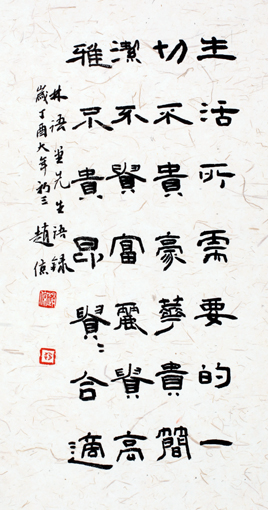 生活所需要的一
切不貴豪華貴簡
潔不貴富麗貴高
雅不貴昂貴〻合適
林語堂先生語錄
歲丁酉大年初三 趙